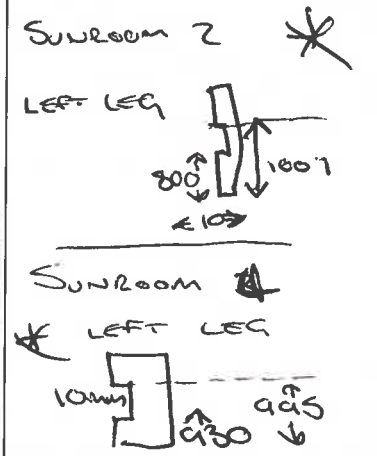 SUNROOM 2
LEFT LEG
800
1007
10
SUNROOM
LEFT LEG
10mm
930
995